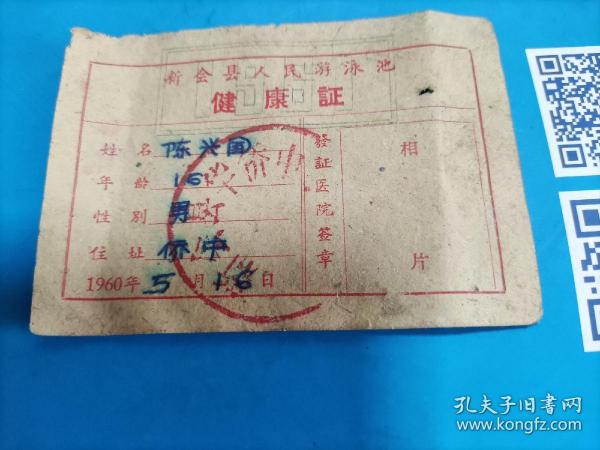 新会县人民游泳池
健康証
姓名 陈兴国
年龄 16
性别 男
住址 侨中
1960年5月16日
發証医院签章
相片
孔夫子旧书网
www.kongfz.com